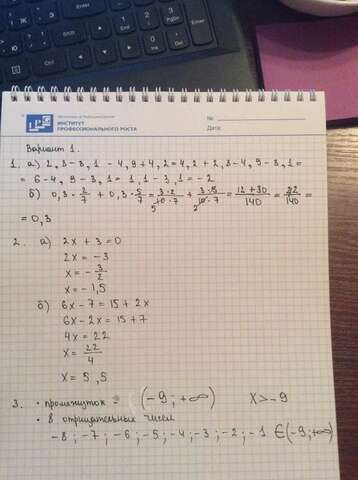 ИНСТИТУТ
ПРОФЕССИОНАЛЬНОГО РОСТА
№:
Дата:
Вариант 1.
1. а) 2,3-8,1 - 4,9+4,2=4,2+2,3-4,9-8,1=
= 6-4,9-3,1=1,1-3,1=-2
б) 0,3·2/7 + 0,3·5/7 = 3·2/10·7 + 3·5/10·7 = 12+30/140 = 22/140 =
= 0,3
2. а) 2x + 3 = 0
2x = -3
x = -3/2
x = -1,5
б) 6x - 7 = 15 + 2x
6x - 2x = 15 + 7
4x = 22
x = 22/4
x = 5,5
3. · промежуток = (-9; +∞) x > -9
· 8 отрицательных чисел
-8; -7; -6; -5; -4; -3; -2; -1 ∈ (-9; +∞)